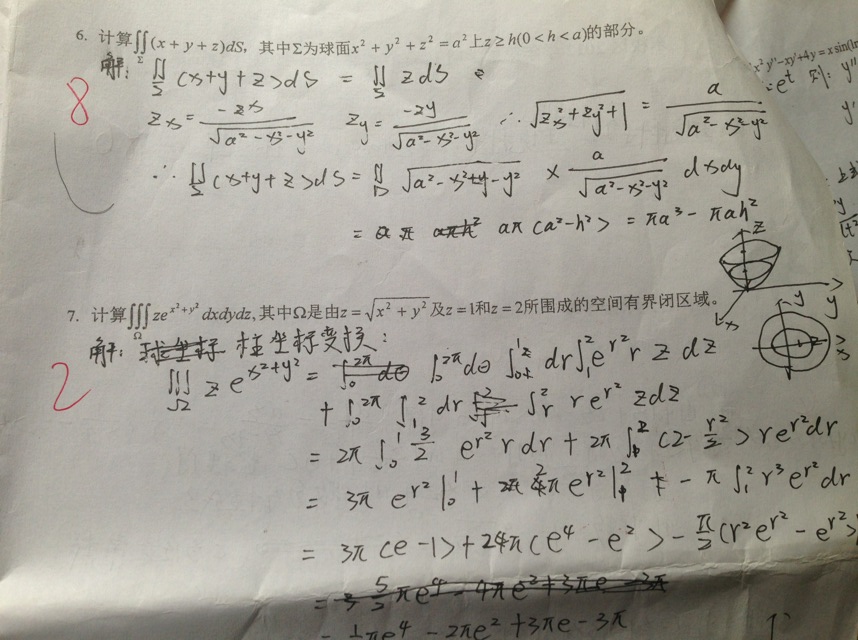 6. 计算∬_Σ(x+y+z)dS，其中Σ为球面x²+y²+z²=a²上z≥h(0<h<a)的部分。
解: ∬_Σ (x+y+z)dS = ∬_Σ z dS
8
z_x = -2x/√(a²-x²-y²) z_y = -2y/√(a²-x²-y²) ∴ √(z_x²+z_y²+1) = a/√(a²-x²-y²)
∴ ∬_Σ (x+y+z)dS = ∬_D √(a²-x²-y²) × a/√(a²-x²-y²) dxdy
= aπ(a²-h²) = πa³ - πah²
x²y''-xy'+4y=x sin(ln
=e^t 则: y''
y'
z
y
x
7. 计算∭_Ω ze^(x²+y²) dxdydz，其中Ω是由z=√(x²+y²)及z=1和z=2所围成的空间有界闭区域。
y
x
解: 柱坐标变换:
2
∭_Ω z e^(x²+y²) = ∫_0^2π dθ ∫_0^1 dr ∫_1^2 e^(r²) r z dz
+ ∫_0^2π ∫_1^2 dr ∫_r^2 r e^(r²) z dz
= 2π ∫_0^1 3/2 e^(r²) r dr + 2π ∫_1^2 (2 - r²/2) r e^(r²) dr
= 3π e^(r²)|_0^1 + 2π e^(r²)|_1^2 - π ∫_1^2 r³ e^(r²) dr
= 3π(e-1) + 2π(e⁴-e²) - π/2 (r² e^(r²) - e^(r²))
= 1/2 πe⁴ - 2πe² + 3πe - 3π